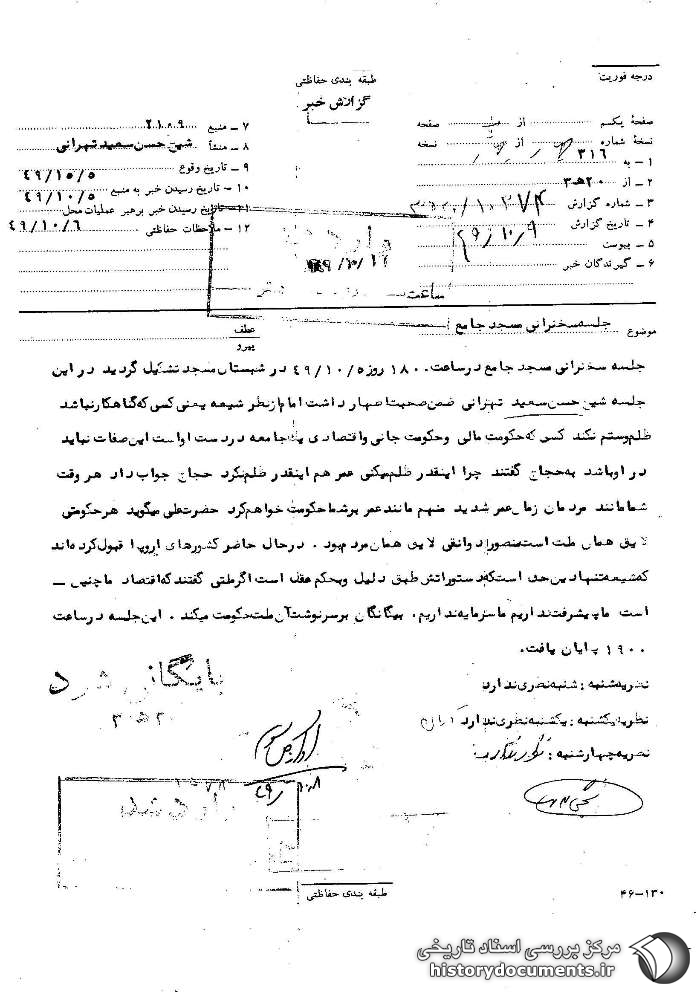 درجه فوریت
طبقه بندی حفاظتی
گزارش خبر
صفحهٔ یکم از صفحه
نسخهٔ شماره از نسخه
۱ - به ۳۱۶
۲ - از ۲۰ه۳
۳ - شماره گزارش
۴ - تاریخ گزارش ۴۹/۱۰/۹
۵ - پیوست
۶ - گیرندگان خبر
۷ - منبع ۲۱۰۹
۸ - منشأ شیخ حسن سعید تهرانی
۹ - تاریخ وقوع ۴۹/۱۰/۵
۱۰ - تاریخ رسیدن خبر به منبع ۴۹/۱۰/۵
۱۱ - تاریخ رسیدن خبر برهبر عملیات محل ۴۹/۱۰/۶
۱۲ - ملاحظات حفاظتی
ساعت
موضوع جلسه سخنرانی مسجد جامع
عطف
پیرو
جلسه سخنرانی مسجد جامع در ساعت ۱۸۰۰ روز ۴۹/۱۰/۵ در شبستان مسجد تشکیل گردید در این
جلسه شیخ حسن سعید تهرانی ضمن صحبت اظهار داشت امام از نظر شیعه یعنی کسی که گناهکار نباشد
ظلم وستم نکند کسی که حکومت مالی وحکومت جانی واقتصادی یک جامعه در دست اواست این صفات نباید
در اوباشد به حجاج گفتند چرا اینقدر ظلم میکنی عمر هم اینقدر ظلم نکرد حجاج جواب داد هر وقت
شما مانند مردمان زمان عمر شدید منهم مانند عمر بر شما حکومت خواهم کرد حضرت علی میگوید هر حکومتی
لایق همان ملت است منصور دوانقی لایق همان مردم بود . در حال حاضر کشورهای اروپا قبول کرده اند
که شیعه تنها دین حق است که دستوراتش طبق دلیل وبحکم عقل است اگر ملتی گفتند که اقتصاد ما چنین -
است ما پیشرفت نداریم ما سرمایه نداریم، بیگانگان بر سرنوشت آن ملت حکومت میکند . این جلسه در ساعت
۱۹۰۰ پایان یافت.
نظریه شنبه : شنبه نظری ندارد
نظریه یکشنبه : یکشنبه نظری ندارد
نظریه چهارشنبه :
بایگانی شود
۲۰ه۳
۴۹/۱۰/۸
وارد شد
طبقه بندی حفاظتی
۴۶-۱۳۰
مرکز بررسی اسناد تاریخی
historydocuments.ir